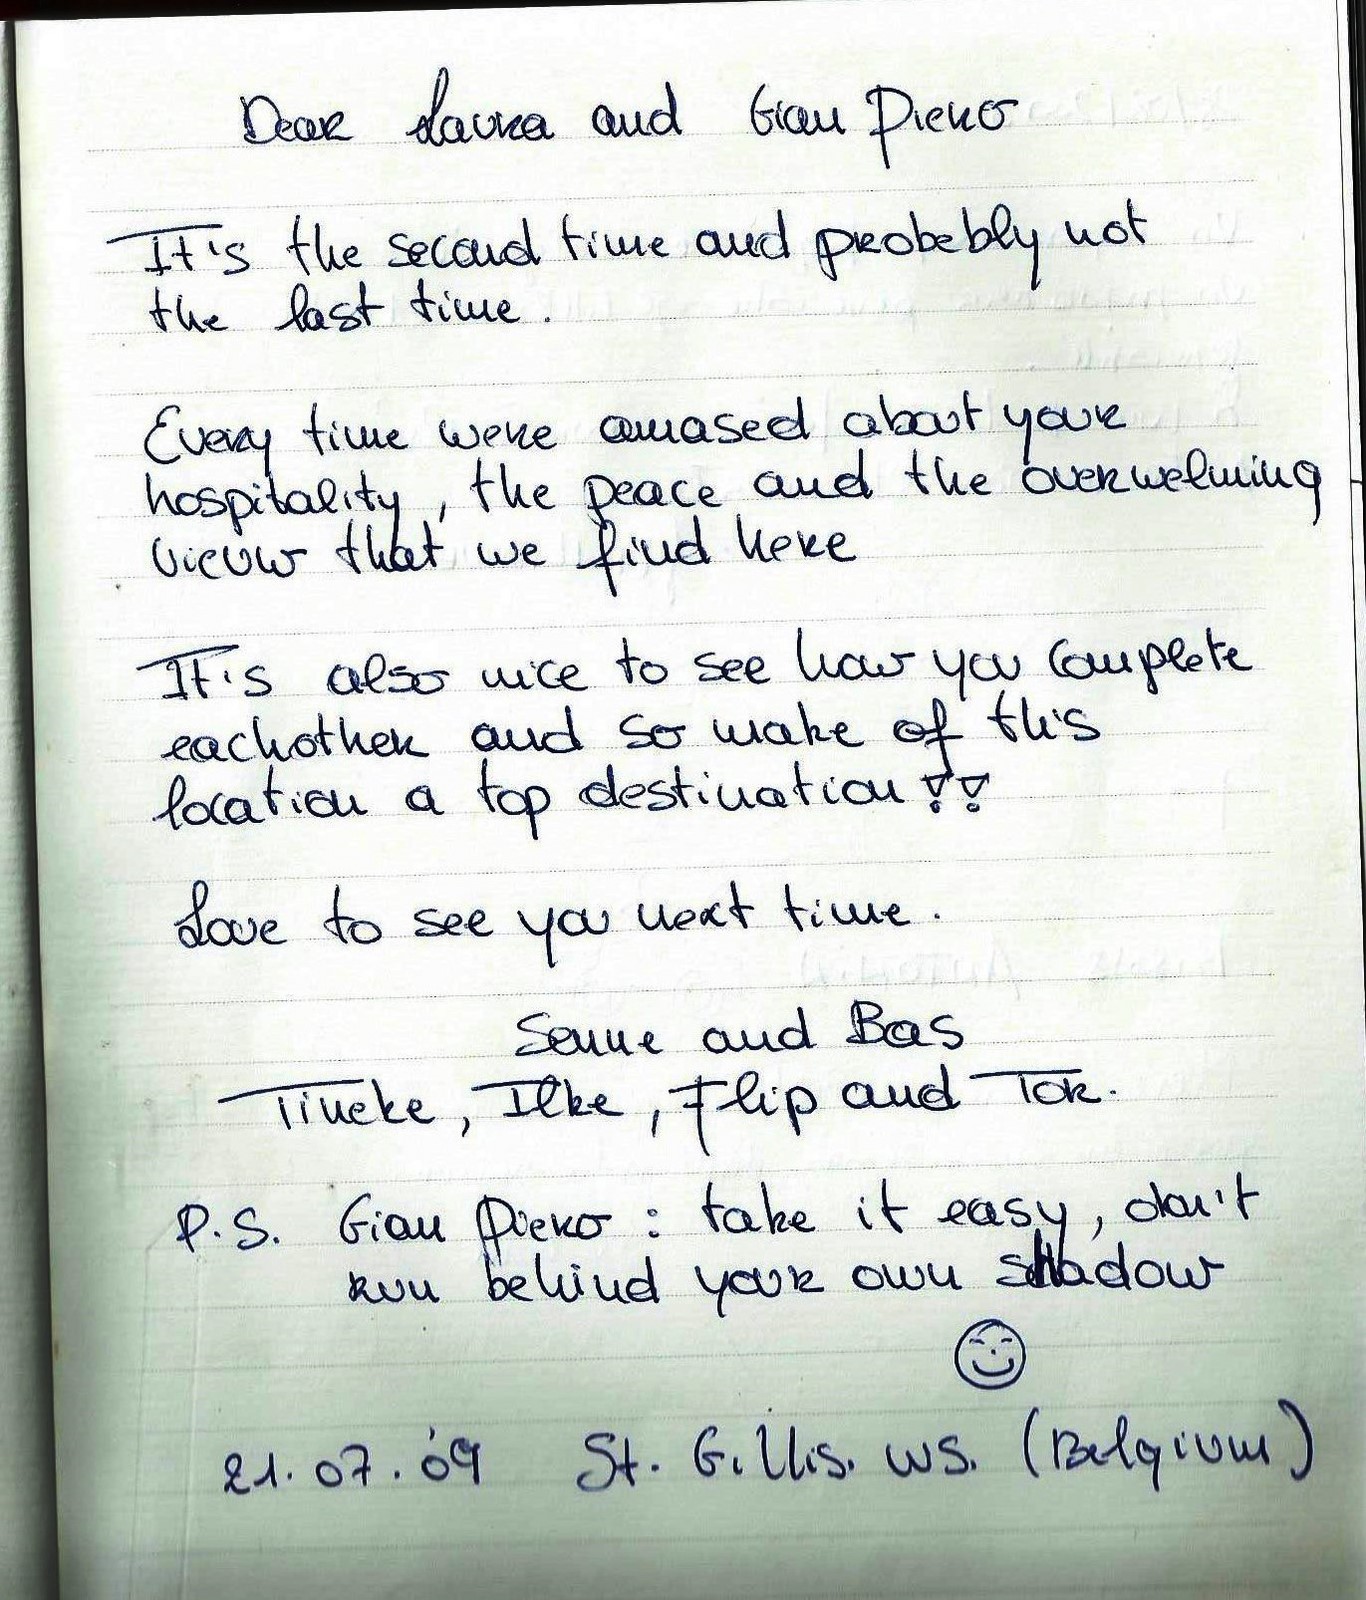 Dear Laura and Gian Piero
It's the second time and probebly not
the last time.
Every time were amased about your
hospitality, the peace and the overwelming
vieuw that we find here
It's also nice to see how you complete
eachother and so make of this
location a top destination!!
Love to see you next time.
Senne and Bas
Tineke, Ilke, Flip and Tor.
P.S. Gian Piero: take it easy, don't
run behind your own shadow
21.07.'09 St. Gillis. WS. (Belgium)